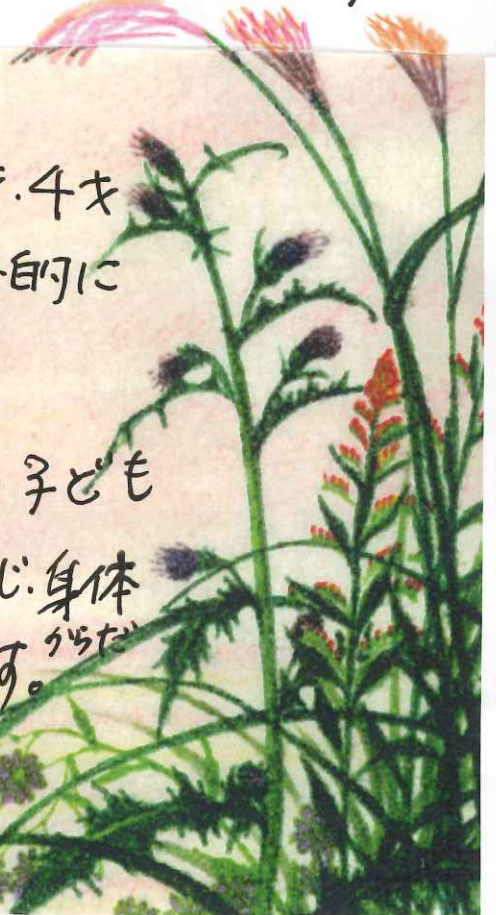 ・4才
的に
子ども
じ・身体
からだ
す。